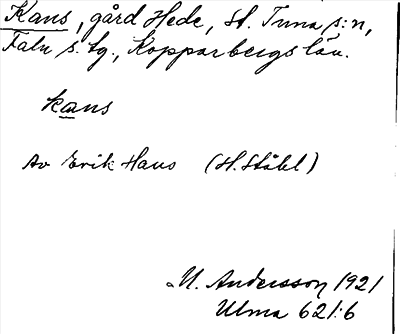 Kans, gård Hede, St. Tuna s:n,
Falu s. tg., Kopparbergs län.
kans
Av Erik Hans (H. Ståhl)
U. Andersson 1921
Ulma 621:6